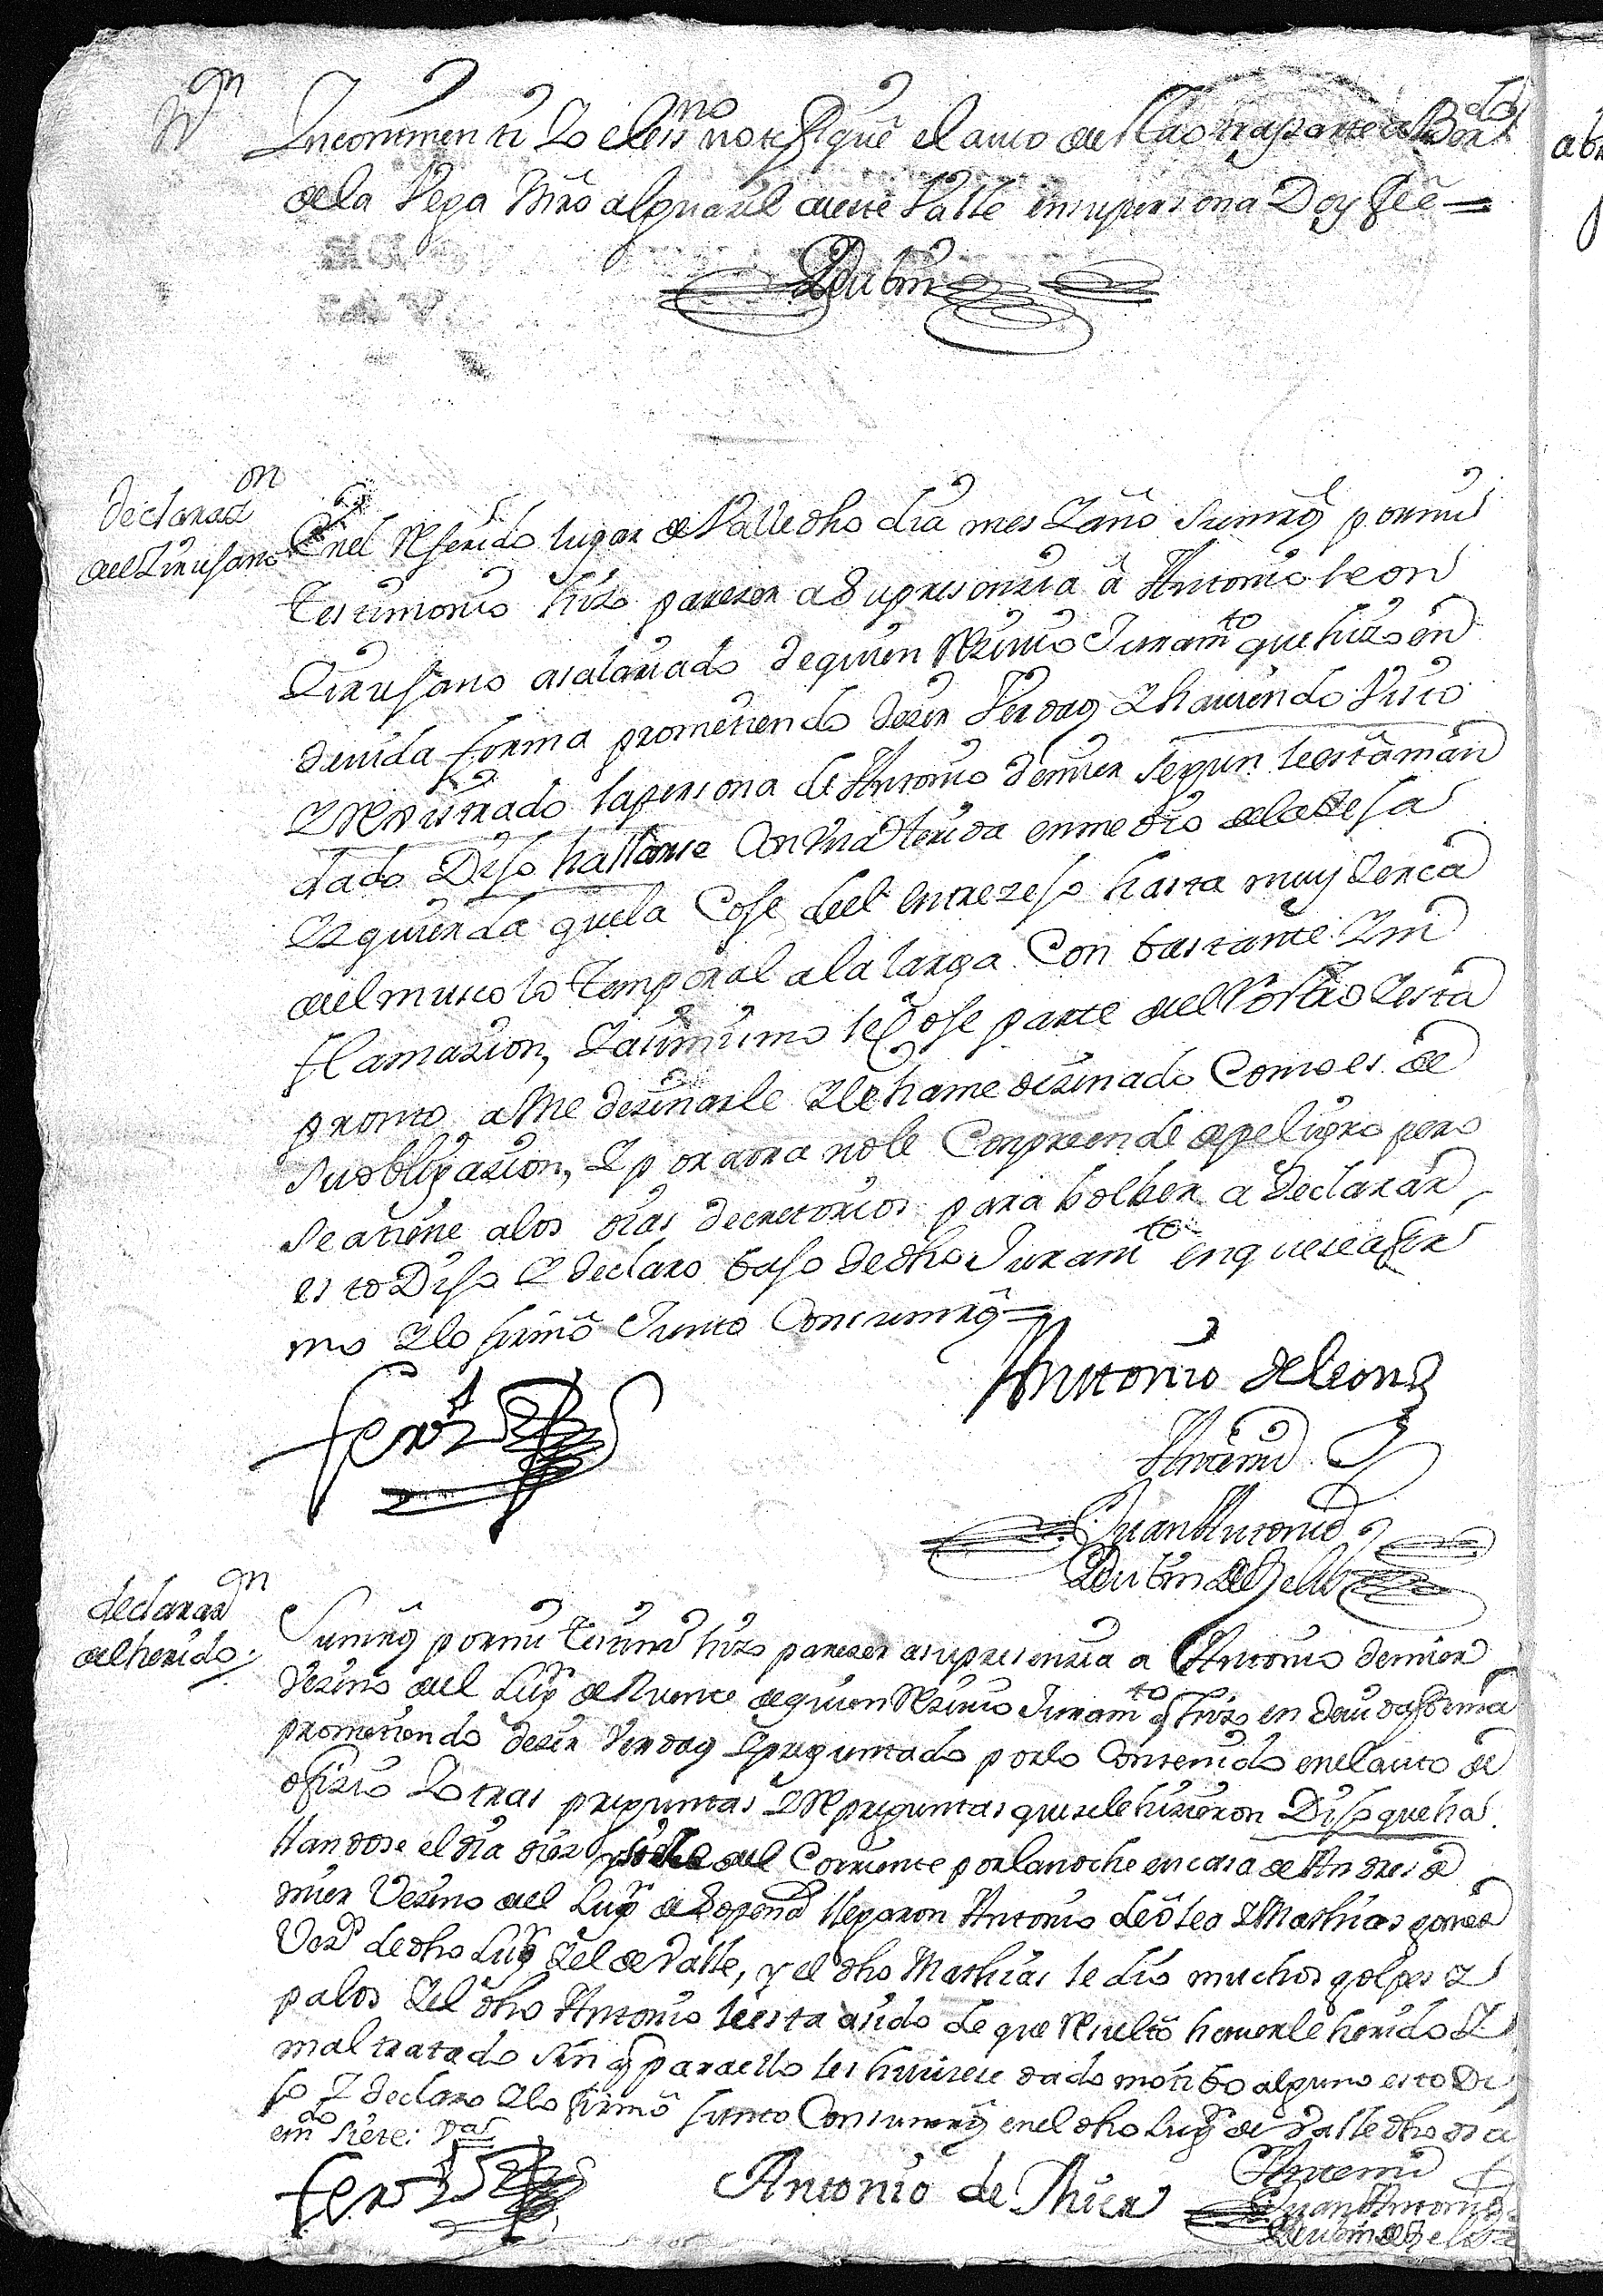 Nn
Incontinenti Yo el essno notifiqué el auto de la otra parte a Barme
de la Vega Mro alguazil de este Valle en su persona Doy feé =
Rubin
Declarazon
del Zirujano
En el Referido lugar de Valle dho dia mes Y año Su mrd por mi
testimonio hizo parezer a Su presenzia â Antonio leon
Zirujano asalariado de quien Rezivio Juramto que hizo en
devida forma prometiendo dezir Verdad Y haviendo Visto
Y Rexistrado la persona de Antonio de mier Segun le está man
dado Dijo hallarse Con una herida en medio de la Zeja
Yzquierda que la Coje de el entrezejo hasta muy Zerca
del musculo temporal a la larga Con bastante Yn
flamazion, Y asimismo le Coje parte del Y esta
pronto a Me dezinarle Y le ha me dizinado Como es de
su obligazion, Y por aora no le Conpreende de peligro pero
se atiene a los dias decretorios para bolber a declarar
esto Dijo Y declaro bajo de dho Juramto en que se afir
mo Y lo firmó Junto Con su mrd =
Antonio de leon
Antemi
Juan Antonio
Rubin de Zelis
declarazon
del herido
Su mrd por mi testimo hizo parezer a su presenzia a Antonio de mier
Vezino del Lugr de Ruente de quien Rezivio Juramto q hizo en devida forma
prometiendo dezir Verdad Y preguntado por lo Contenido en el auto de
ofizio Y otras preguntas Y Repreguntas que se le hizieron Dijo que ha
llandose el dia diez y siete del Corriente por la noche en casa de Andres de
mier Vezino del Lugr de Sopeña llegaron Antonio de ôteo Y Mathias gomez
Vezos de dho Lugr Y el de Valle, y el dho Mathias le dio muchos golpes Y
palos Y el dho Antonio le esta asido de que Resultó haverle herido Y
mal tratado sin q para ello les huviese dado motibo alguno esto Di
jo Y declaro Y lo firmó Junto Con su mrd en el dho Lugr de Valle dho dia
emdo siete: Va
Antonio de Mier
Antemi
Juan Antonio
Rubin de Zelis